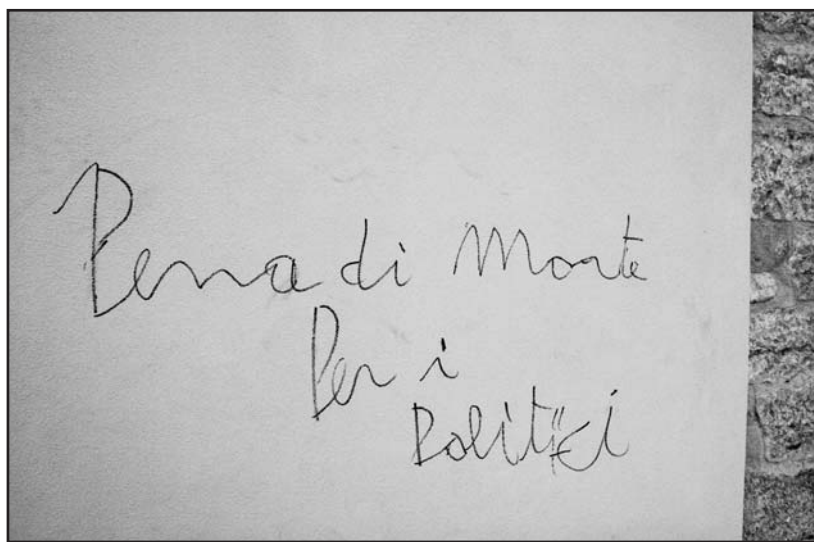 Pena di Morte
Per i
Politici